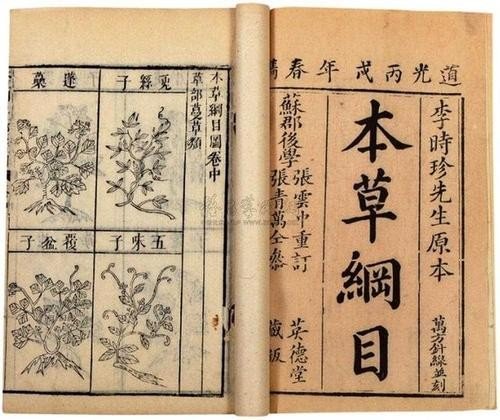 道光丙戌年春鐫
李時珍先生原本
萬方針線並刻
本草綱目
蘇郡後學
張雲中重訂
張青萬仝叅
英德堂
藏板
本草綱目圖卷中
草部蔓草類
兔絲子
蓬蘽
五味子
覆盆子